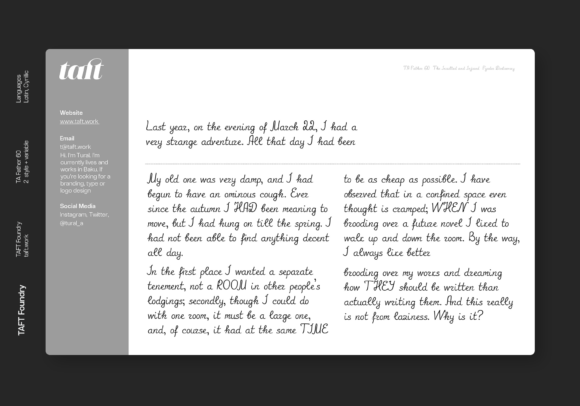 Languages
Latin, Cyrillic
TA Father 60
2 style + variable
TAFT Foundry
taft.work
TAFT Foundry
taft
Website
www.taft.work
Email
t@taft.work
Hi, I'm Tural. I'm
currently lives and
works in Baku. If
you're looking for a
branding, type or
logo design
Social Media
Instagram, Twitter,
@tural_a
TA Father 60
Last year, on the evening of March 22, I had a
very strange adventure. All that day I had been
My old one was very damp, and I had
begun to have an ominous cough. Ever
since the autumn I HAD been meaning to
move, but I had hung on till the spring. I
had not been able to find anything decent
all day.
In the first place I wanted a separate
tenement, not a ROOM in other people's
lodgings; secondly, though I could do
with one room, it must be a large one,
and, of course, it had at the same TIME
to be as cheap as possible. I have
observed that in a confined space even
thought is cramped; WHEN I was
brooding over a future novel I liked to
walk up and down the room. By the way,
I always like better
brooding over my works and dreaming
how THEY should be written than
actually writing them. And this really
is not from laziness. Why is it?